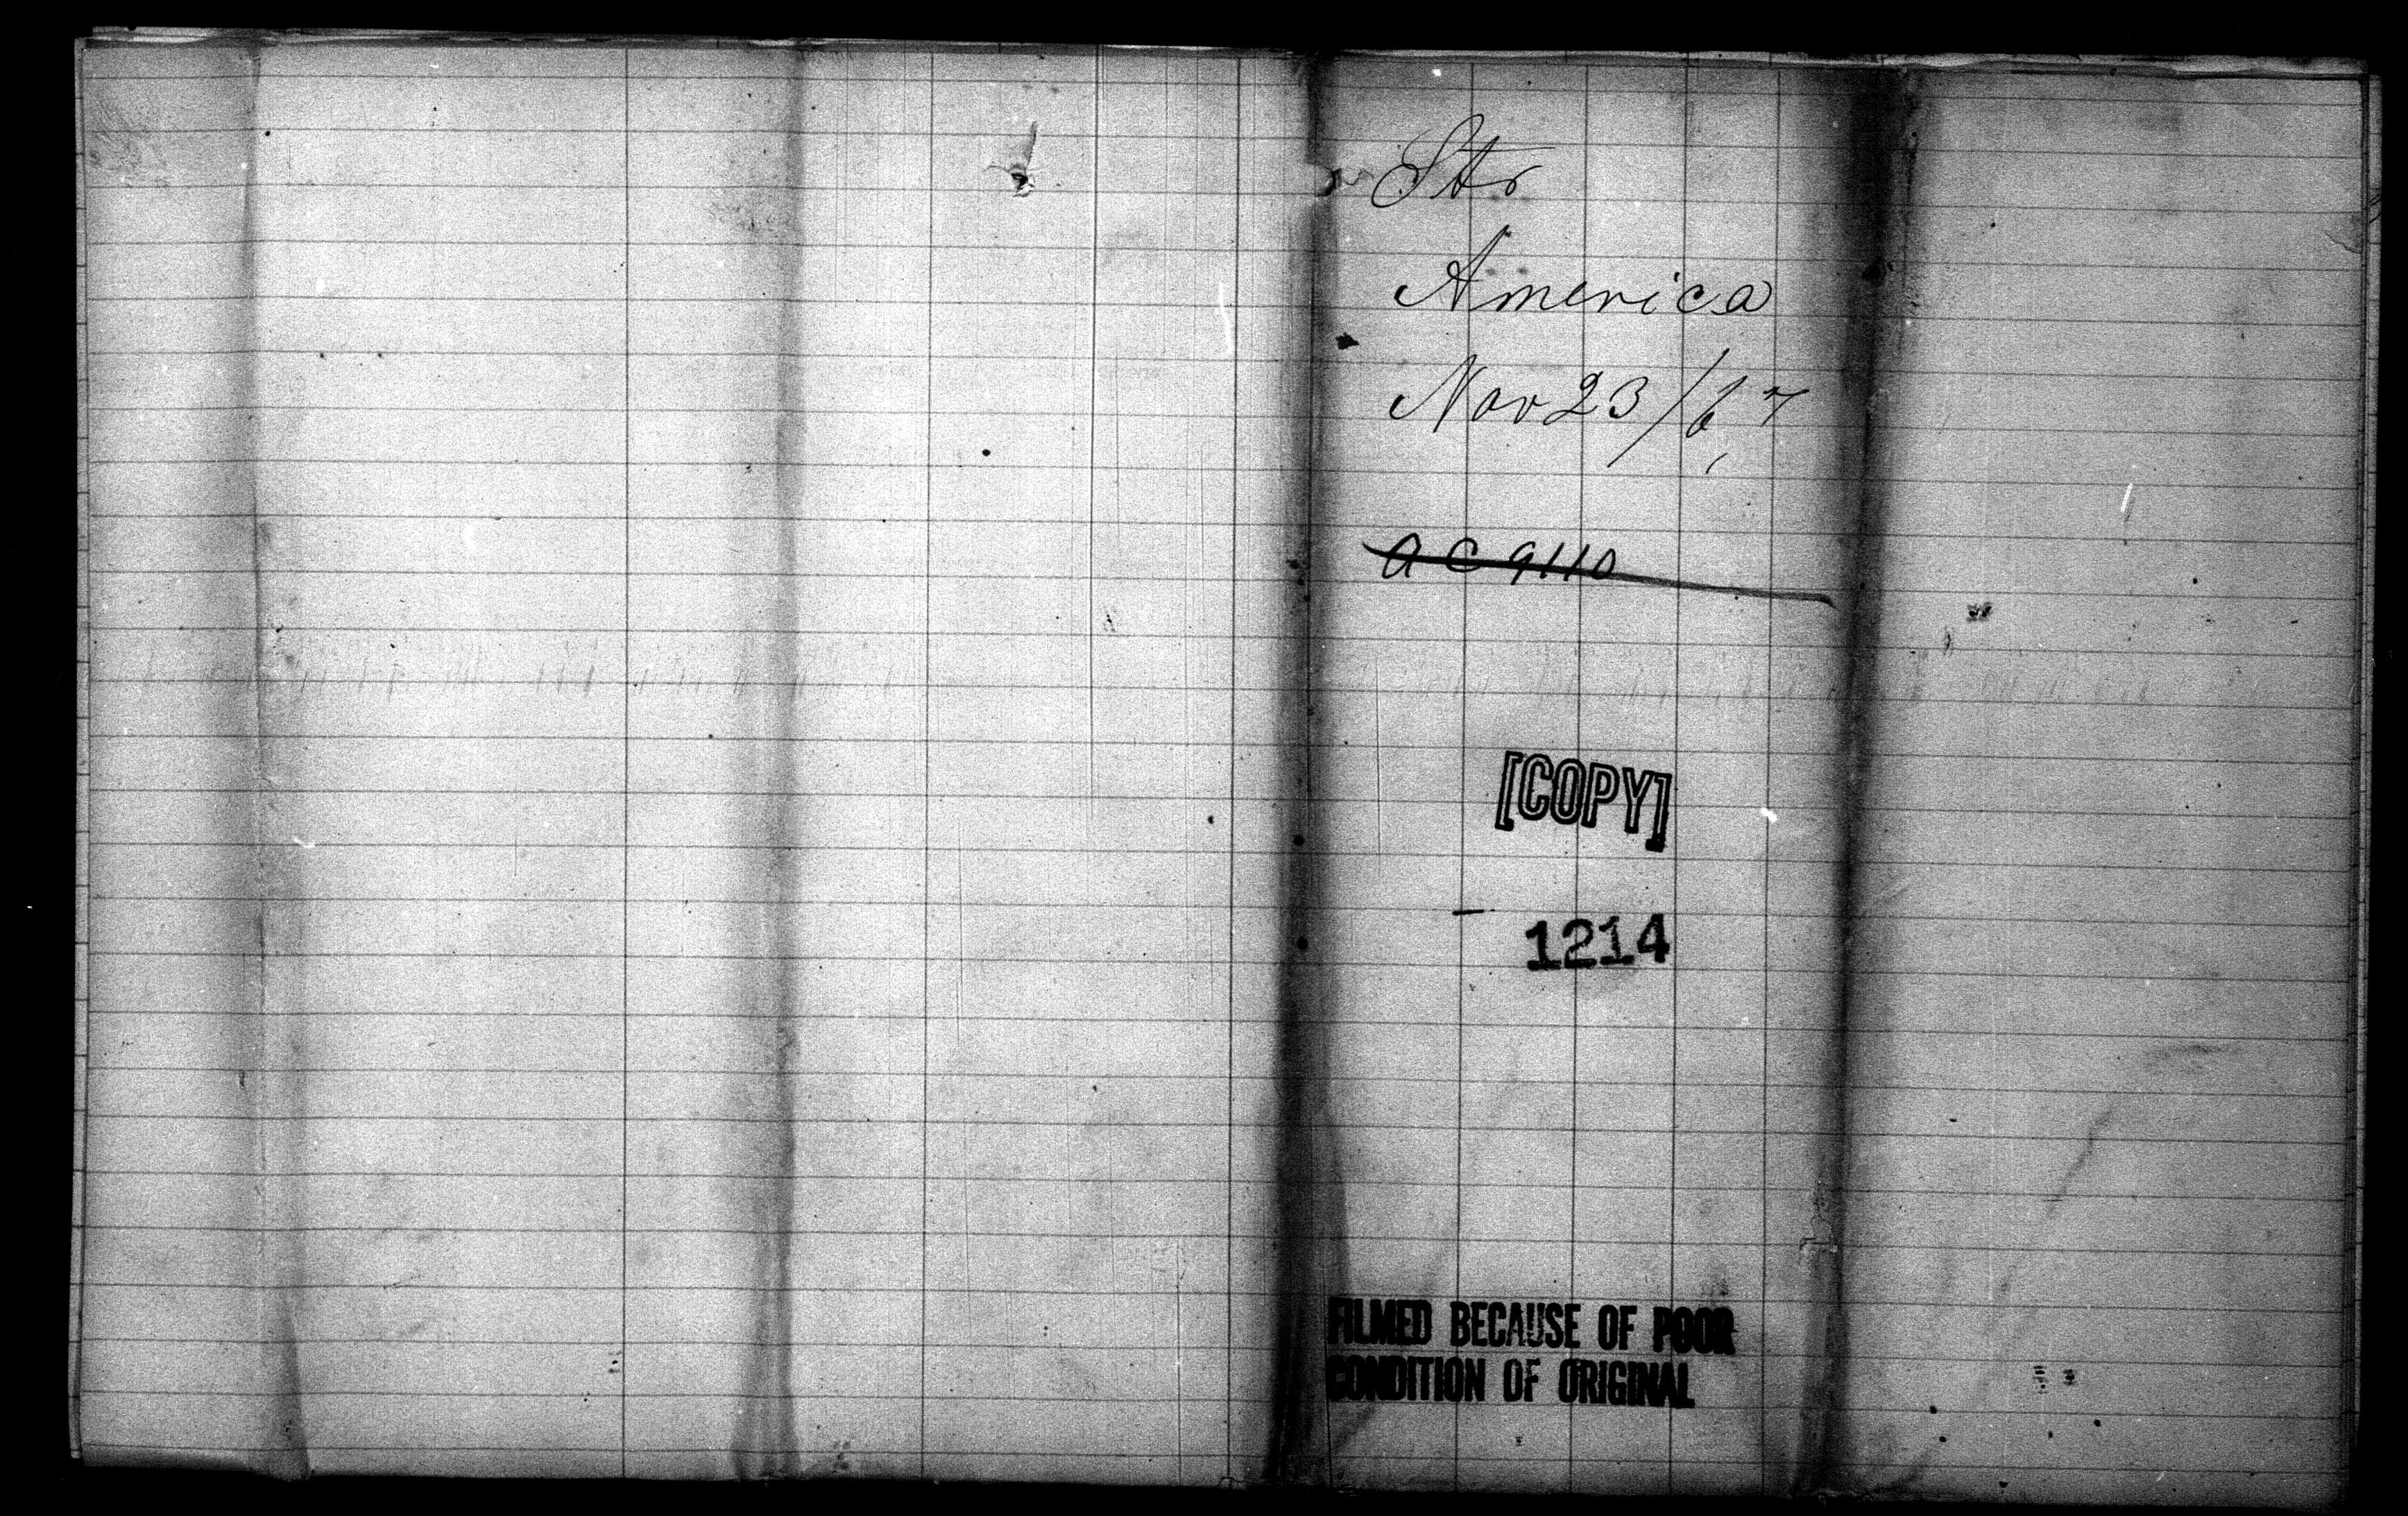 Str
America
Nov 23/67
a c 9110
[COPY]
1214
FILMED BECAUSE OF POOR
CONDITION OF ORIGINAL